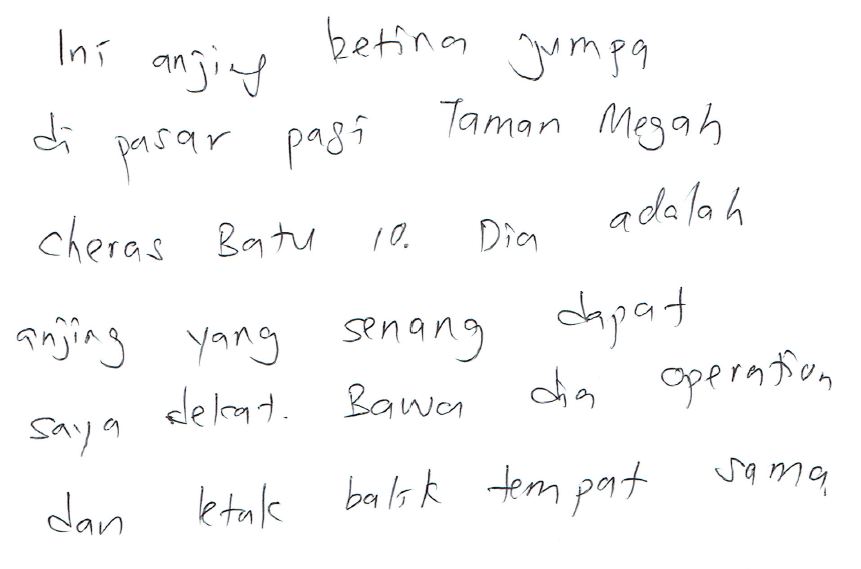 Ini anjing betina jumpa
di pasar pagi Taman Megah
cheras Batu 10. Dia adalah
anjing yang senang dapat
saya dekat. Bawa dia operation
dan letak balik tempat sama